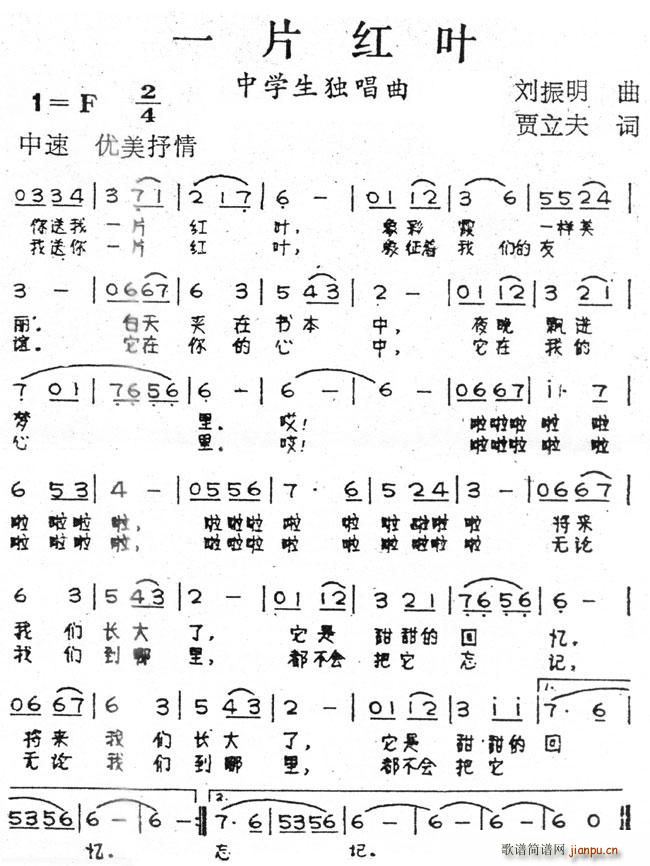 一片红叶
中学生独唱曲
1=F 2/4
刘振明 曲
贾立夫 词
中速 优美抒情
0334 | 3 71 | 2 17 | 6 - | 01 12 | 3 6 | 5524 |
你送我 一片 红 叶, 象彩 霞 一样美
我送你 一片 红 叶, 象征着 我 们的 友
3 - | 0667 | 6 3 | 5 43 | 2 - | 01 12 | 3 21 |
丽. 白天 夹 在 书本 中, 夜晚 飘进
谊. 它在 你 的 心 中, 它在 我的
7 01 | 7656 | 6 - | 6 - | 6 - | 0667 | i· 7 |
梦 里. 哎! 啦啦啦 啦 啦
心 里. 哎! 啦啦啦 啦 啦
6 53 | 4 - | 0556 | 7· 6 | 5 24 | 3 - | 0667 |
啦 啦啦 啦, 啦啦啦 啦 啦 啦 啦啦 啦 将来
啦 啦啦 啦, 啦啦啦 啦 啦 啦 啦啦 啦 无论
6 3 | 5 43 | 2 - | 01 12 | 3 21 | 7656 | 6 - |
我 们 长 大 了, 它是 甜 甜的 回 忆.
我 们 到 哪 里, 都不会 把它 忘 记,
0667 | 6 3 | 5 43 | 2 - | 01 12 | 3 i i | 1. 7· 6 |
将来 我 们 长 大 了, 它是 甜 甜的 回
无论 我 们 到 哪 里, 都不会 把它
5356 | 6 - | 6 - :‖ 2. 7· 6 | 5356 | 6 - | 6 - | 6 0 ‖
忆. 忘 记.
歌谱简谱网
jianpu.cn